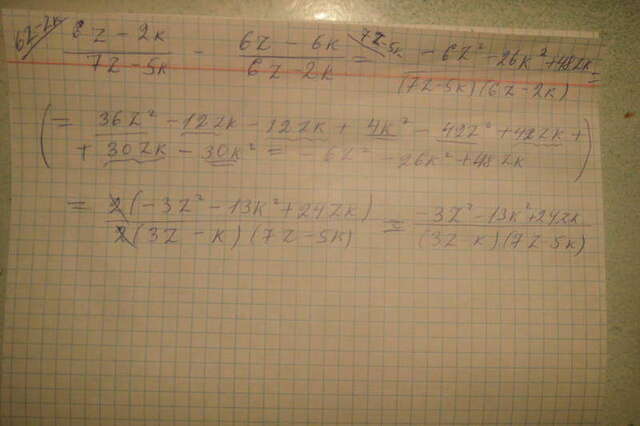 6Z-2K 6Z - 2K / 7Z - 5K - 6Z - 6K / 6Z - 2K = 7Z-5K -6Z² - 26K² + 48ZK / (7Z-5K)(6Z-2K) =
(= 36Z² - 12ZK - 12ZK + 4K² - 42Z² + 42ZK +
+ 30ZK - 30K² = - 6Z² - 26K² + 48ZK)
= 2(-3Z² - 13K² + 24ZK) / 2(3Z - K)(7Z - 5K) = -3Z² - 13K² + 24ZK / (3Z - K)(7Z - 5K)